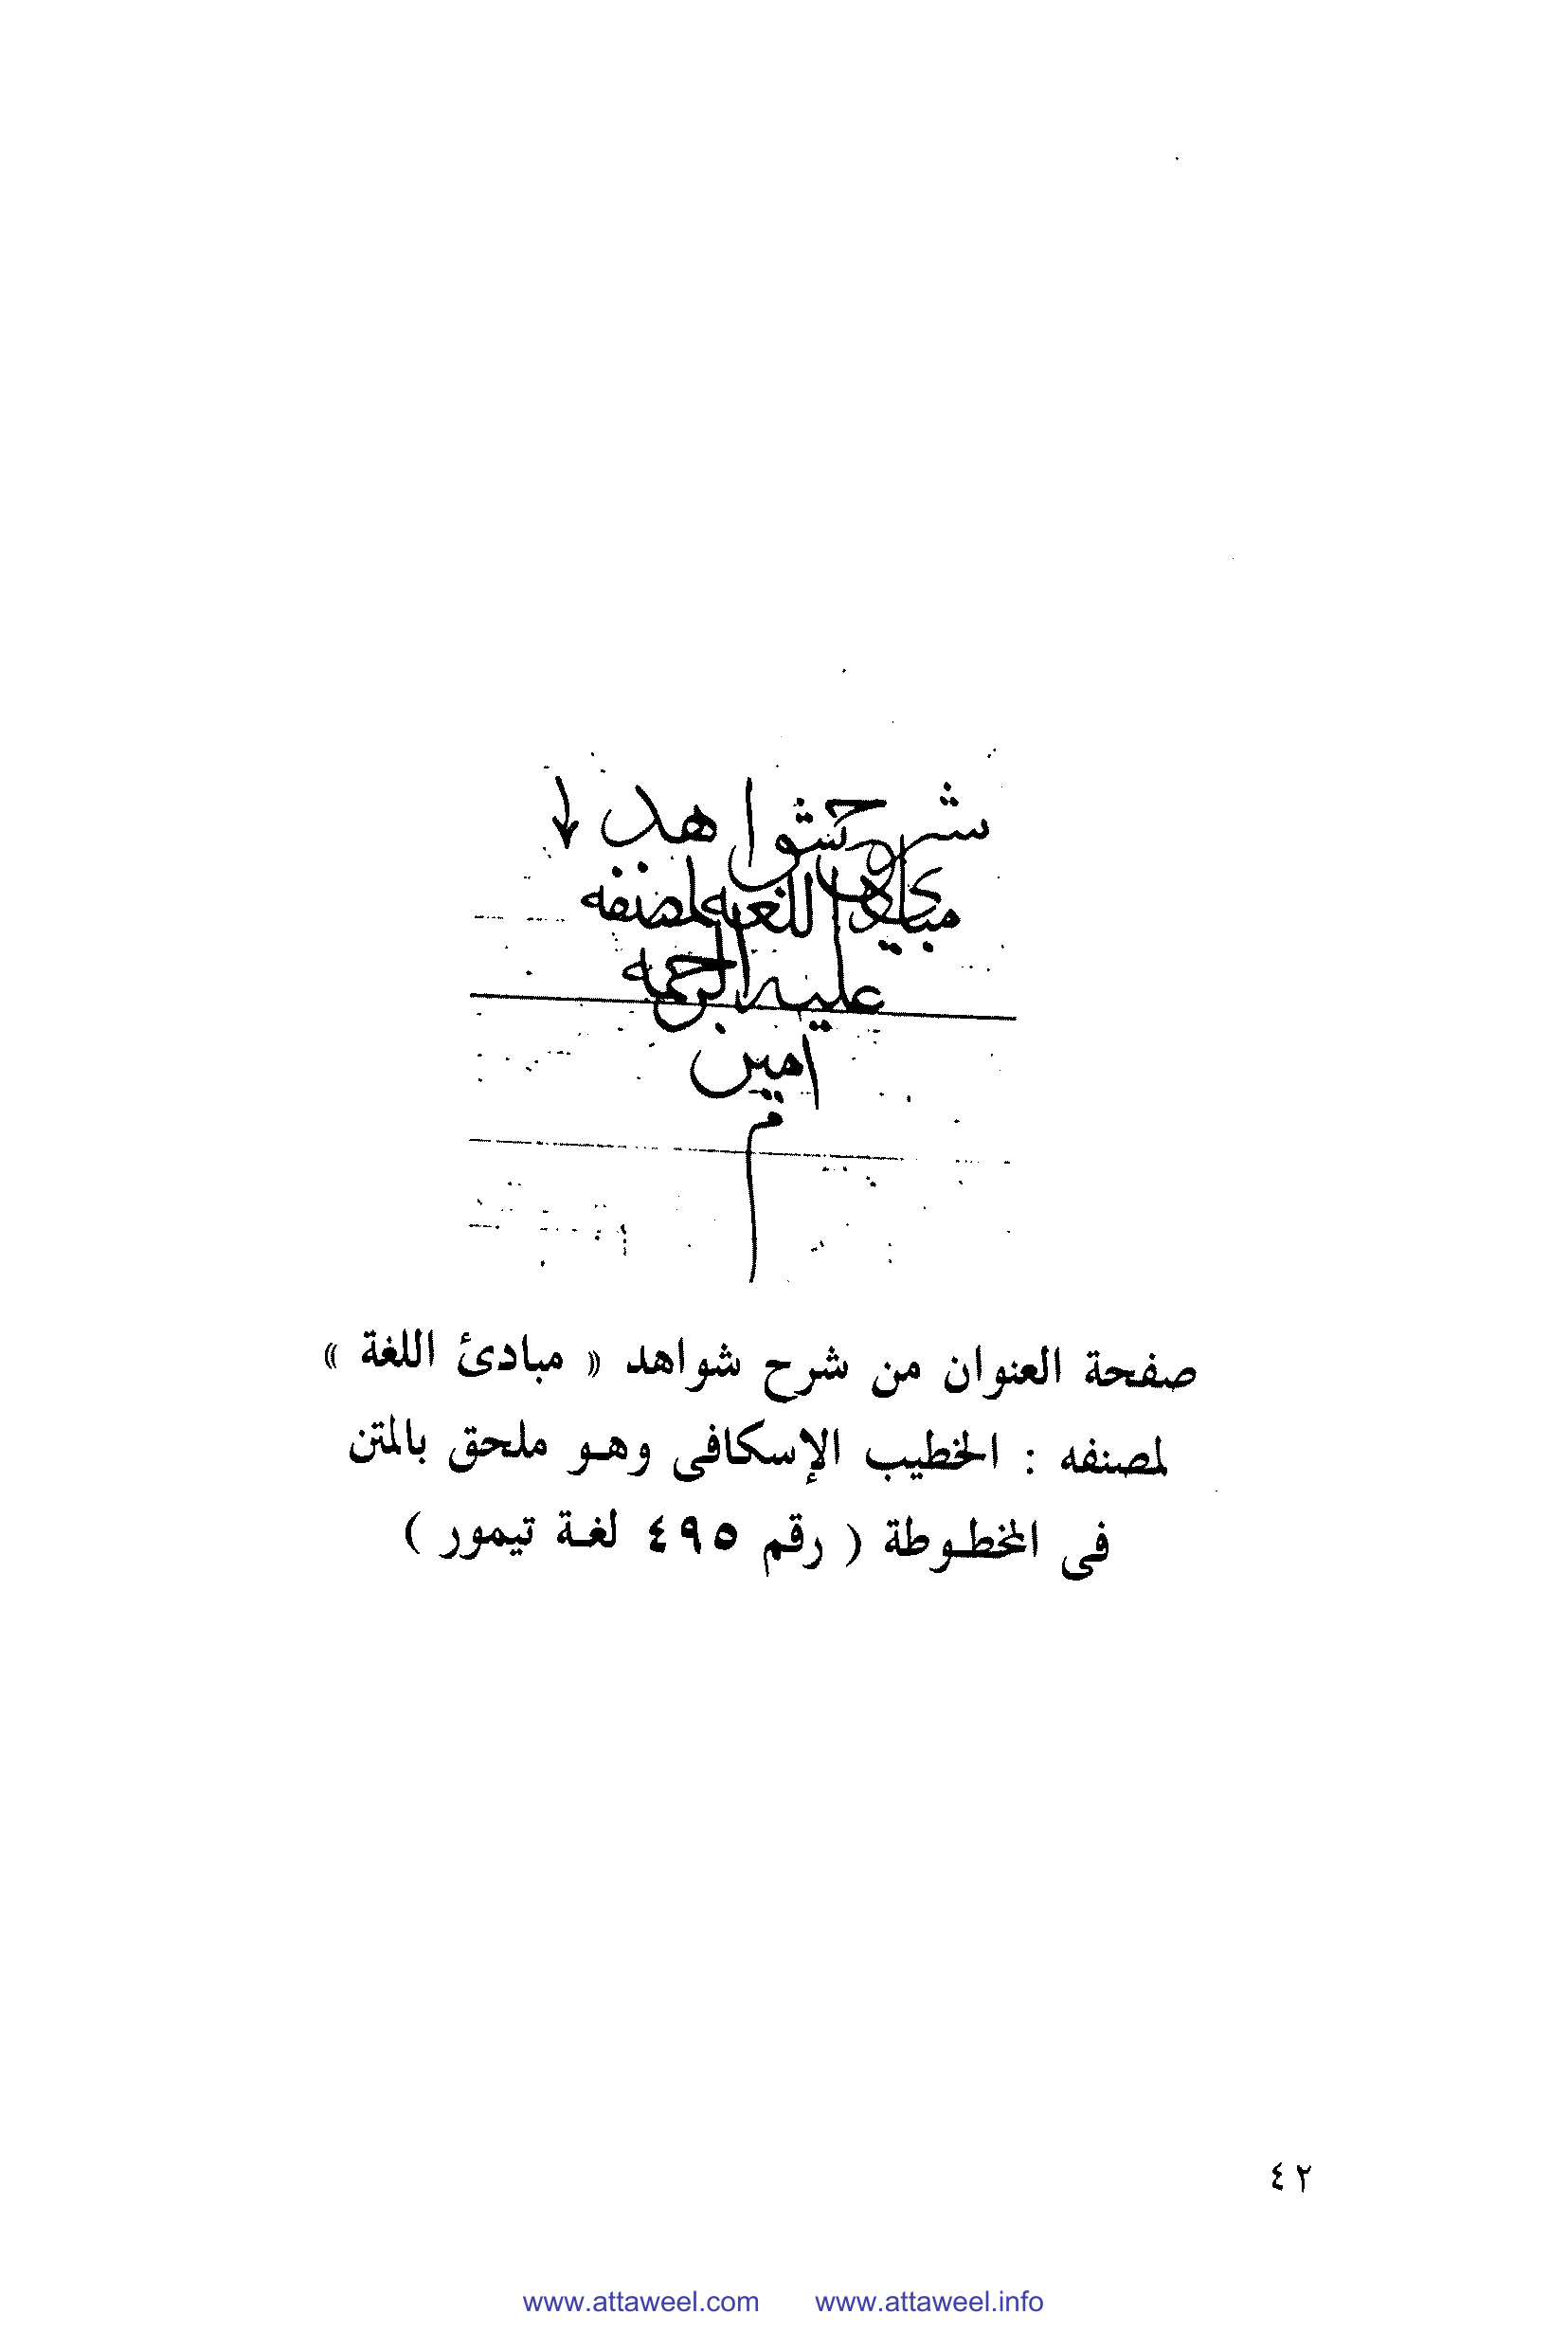 شرح شواهد
مبادي اللغه لمصنفه
عليه الرحمه
امين
م
صفحة العنوان من شرح شواهد « مبادئ اللغة »
لمصنفه : الخطيب الإسكافى وهـو ملحق بالمتن
فى المخطـوطة ( رقم ٤٩٥ لغـة تيمور )
٤٢
www.attaweel.com www.attaweel.info